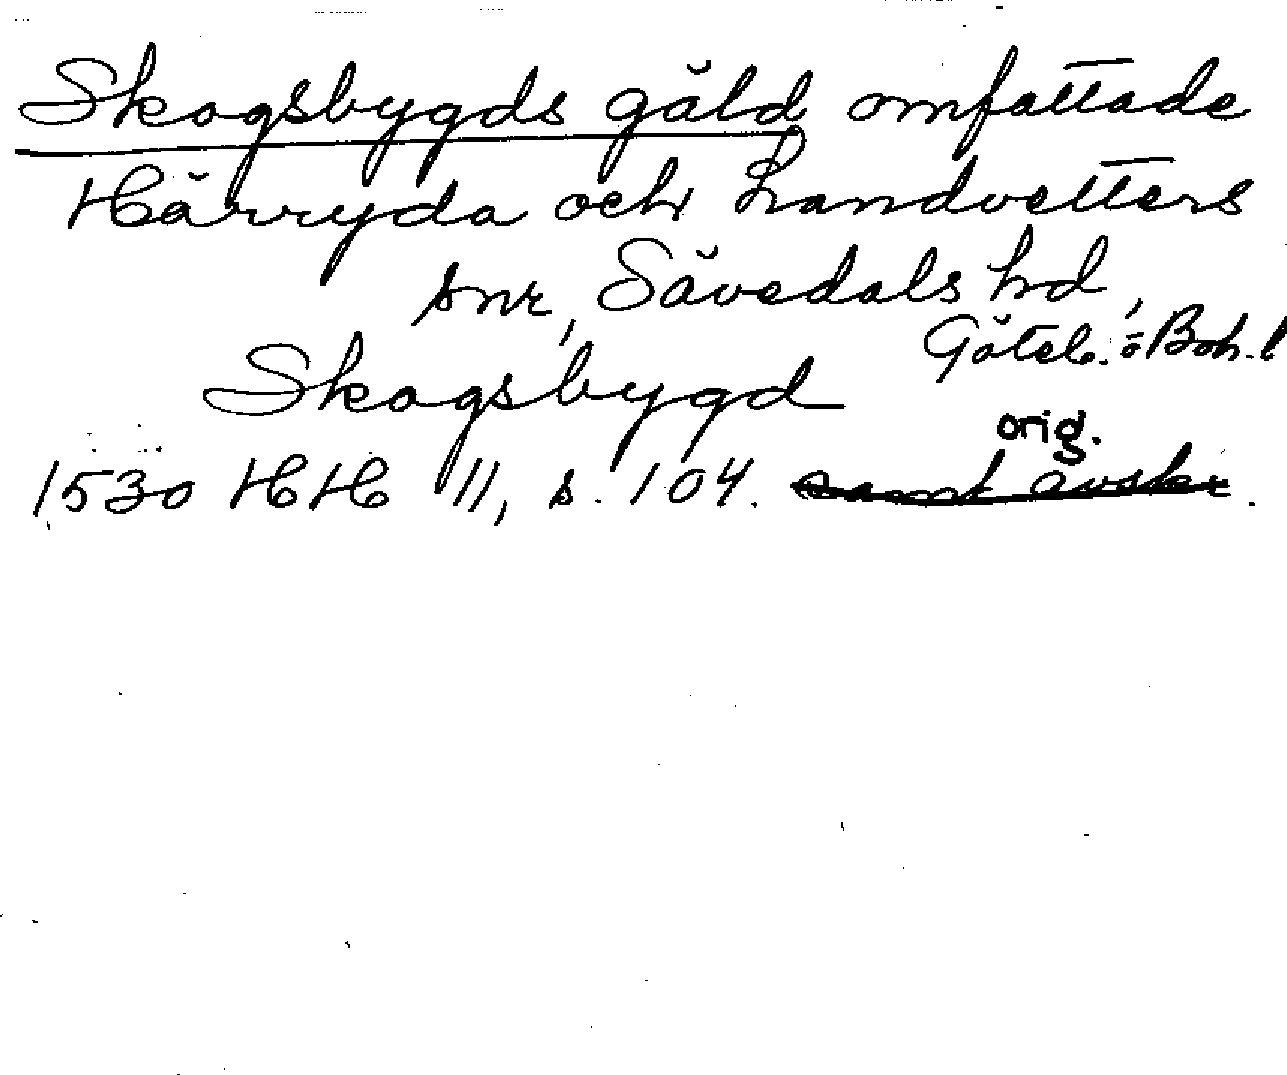 Skogsbygds gäld omfattade
Härryda och Landvetters
snr, Sävedals hd,
Göteb. o Boh. l
Skogsbygd
orig.
1530 HH 11, s. 104. samt avskr.